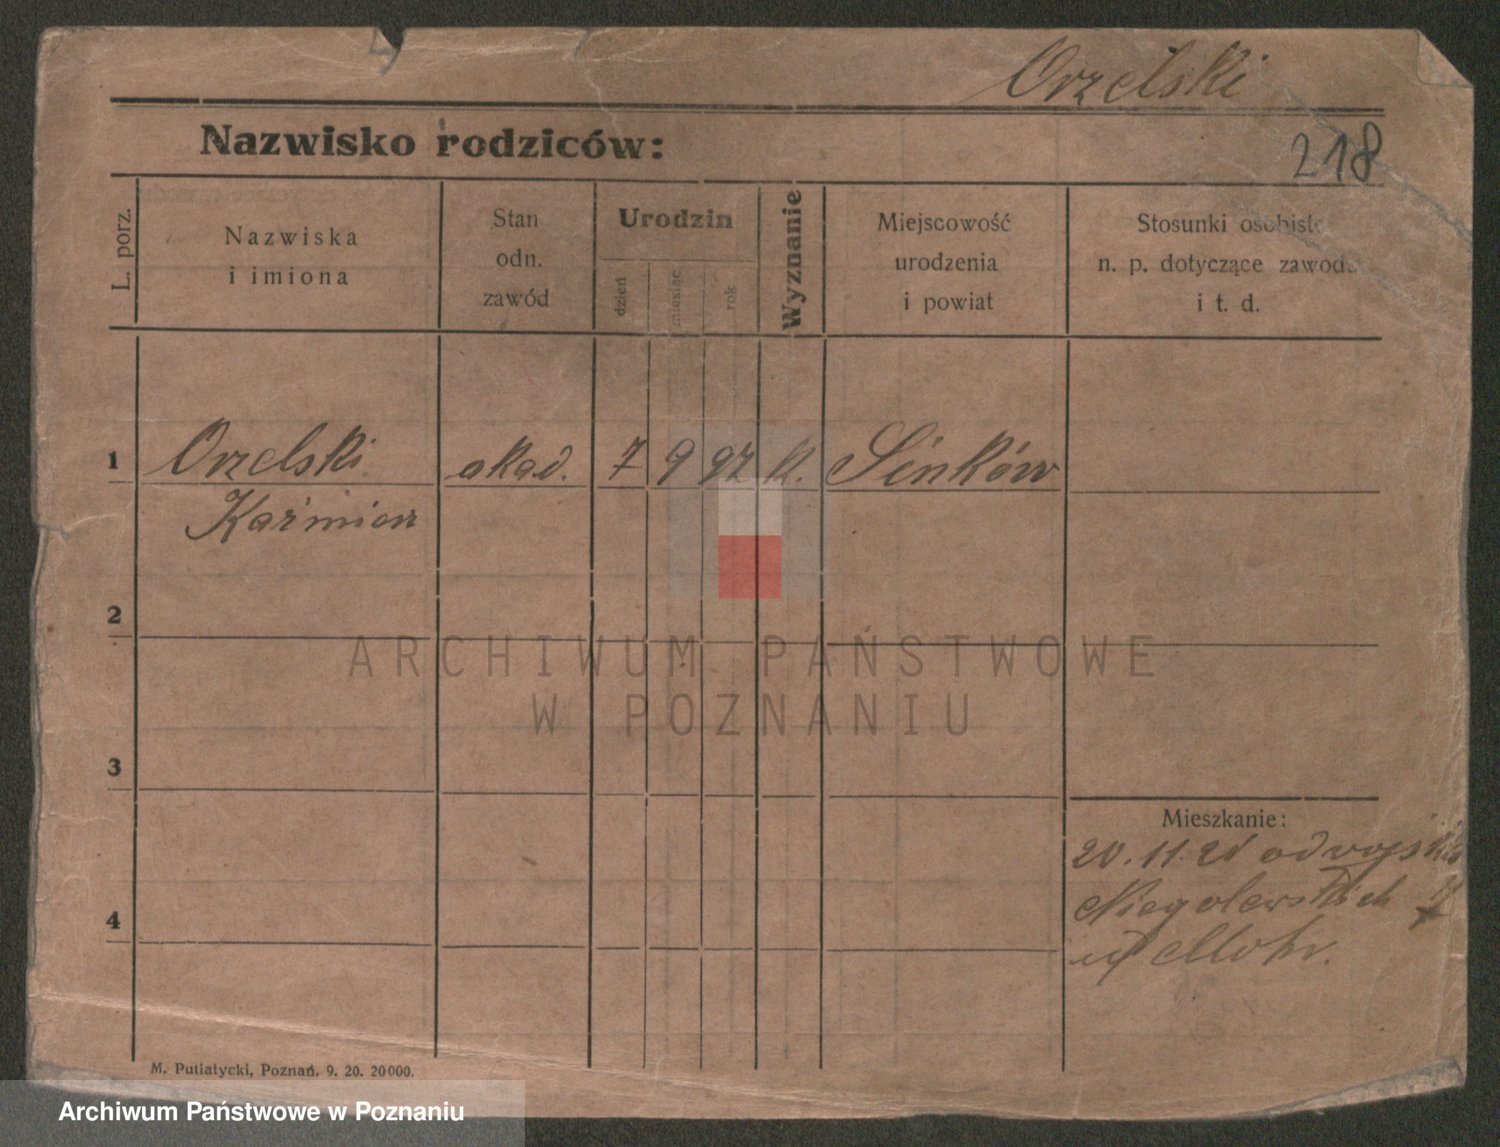 Orzelski
Nazwisko rodziców:
218
L. porz.
Nazwiska
i imiona
Stan
odn.
zawód
Urodzin
dzień
miesiąc
rok
Wyznanie
Miejscowość
urodzenia
i powiat
Stosunki osobiste
n. p. dotyczące zawodu
i t. d.
1 Orzelski akad. 7 9 97 k. Sinków
Kaźmierz
2
ARCHIWUM PAŃSTWOWE
W POZNANIU
3
Mieszkanie:
20.11.21 od wojska
Niegolewskich
4
u Mohr.
M. Putiatycki, Poznań. 9. 20. 20000.
Archiwum Państwowe w Poznaniu